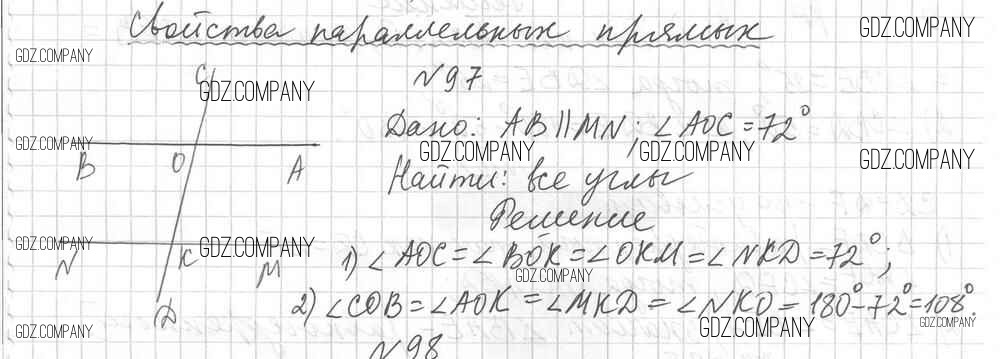 Свойства параллельных прямых
GDZ.COMPANY
GDZ.COMPANY
N 97
C
GDZ.COMPANY
Дано: AB || MN; ∠AOC = 72°
GDZ.COMPANY
B O A
GDZ.COMPANY GDZ.COMPANY
GDZ.COMPANY
Найти: все углы
Решение
GDZ.COMPANY
GDZ.COMPANY
N K M
1) ∠AOC = ∠BOK = ∠OKM = ∠NKD = 72°;
GDZ.COMPANY
D
2) ∠COB = ∠AOK = ∠MKD = ∠NKO = 180° - 72° = 108°.
GDZ.COMPANY
GDZ.COMPANY
GDZ.COMPANY
N 98